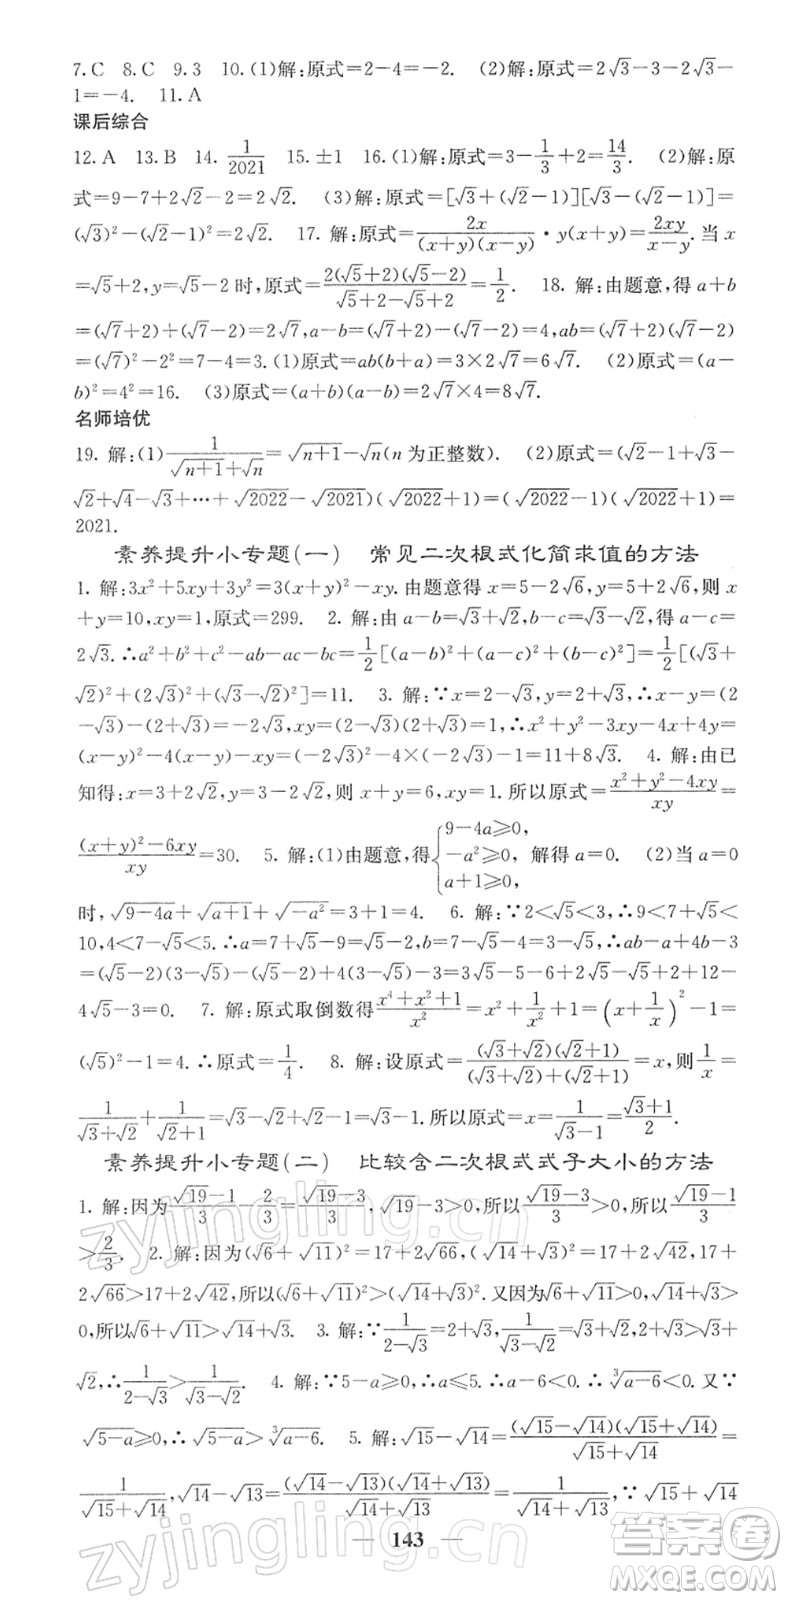 7. C　8. C　9. 3　10. (1)解:原式=2-4=-2.　(2)解:原式=2√3-3-2√3-
1=-4.　11. A
课后综合
12. A　13. B　14. 1/2021　15. ±1　16. (1)解:原式=3-1/3+2=14/3.　(2)解:原
式=9-7+2√2-2=2√2.　(3)解:原式=[√3+(√2-1)][√3-(√2-1)]=
(√3)²-(√2-1)²=2√2.　17. 解:原式=2x/((x+y)(x-y))·y(x+y)=2xy/(x-y). 当 x
=√5+2,y=√5-2 时,原式=2(√5+2)(√5-2)/(√5+2-√5+2)=1/2.　18. 解:由题意,得 a+b
=(√7+2)+(√7-2)=2√7,a-b=(√7+2)-(√7-2)=4,ab=(√7+2)(√7-2)=
(√7)²-2²=7-4=3.(1)原式=ab(b+a)=3×2√7=6√7.　(2)原式=(a-
b)²=4²=16.　(3)原式=(a+b)(a-b)=2√7×4=8√7.
名师培优
19. 解:(1)1/(√(n+1)+√n)=√(n+1)-√n(n 为正整数).　(2)原式=(√2-1+√3-
√2+√4-√3+⋯+√2022-√2021)(√2022+1)=(√2022-1)(√2022+1)=
2021.
素养提升小专题(一)　常见二次根式化简求值的方法
1. 解:3x²+5xy+3y²=3(x+y)²-xy. 由题意得 x=5-2√6,y=5+2√6,则 x
+y=10,xy=1,原式=299.　2. 解:由 a-b=√3+√2,b-c=√3-√2,得 a-c=
2√3.∴a²+b²+c²-ab-ac-bc=1/2[(a-b)²+(a-c)²+(b-c)²]=1/2[(√3+
√2)²+(2√3)²+(√3-√2)²]=11.　3. 解:∵x=2-√3,y=2+√3,∴x-y=(2
-√3)-(2+√3)=-2√3,xy=(2-√3)(2+√3)=1,∴x²+y²-3xy-4x+4y=
(x-y)²-4(x-y)-xy=(-2√3)²-4×(-2√3)-1=11+8√3.　4. 解:由已
知得:x=3+2√2,y=3-2√2,则 x+y=6,xy=1.所以原式=(x²+y²-4xy)/xy=
((x+y)²-6xy)/xy=30.　5. 解:(1)由题意,得{9-4a≥0, -a²≥0, a+1≥0, 解得 a=0.　(2)当 a=0
时,√(9-4a)+√(a+1)+√(-a²)=3+1=4.　6. 解:∵2<√5<3,∴9<7+√5<
10,4<7-√5<5.∴a=7+√5-9=√5-2,b=7-√5-4=3-√5,∴ab-a+4b-3
=(√5-2)(3-√5)-(√5-2)+4(3-√5)-3=3√5-5-6+2√5-√5+2+12-
4√5-3=0.　7. 解:原式取倒数得(x⁴+x²+1)/x²=x²+1/x²+1=(x+1/x)²-1=
(√5)²-1=4.∴原式=1/4.　8. 解:设原式=(√3+√2)(√2+1)/((√3+√2)+(√2+1))=x,则1/x=
1/(√3+√2)+1/(√2+1)=√3-√2+√2-1=√3-1.所以原式=x=1/(√3-1)=(√3+1)/2.
素养提升小专题(二)　比较含二次根式式子大小的方法
1. 解:因为(√19-1)/3-2/3=(√19-3)/3,√19-3>0,所以(√19-3)/3>0,所以(√19-1)/3
>2/3.　2. 解:因为(√6+√11)²=17+2√66,(√14+√3)²=17+2√42,17+
2√66>17+2√42,所以(√6+√11)²>(√14+√3)².又因为√6+√11>0,√14+√3>
0,所以√6+√11>√14+√3.　3. 解:∵1/(2-√3)=2+√3,1/(√3-√2)=√3+√2,2+√3>√3+
√2,∴1/(2-√3)>1/(√3-√2).　4. 解:∵5-a≥0,∴a≤5.∴a-6<0.∴∛(a-6)<0.又∵
√(5-a)≥0,∴√(5-a)>∛(a-6).　5. 解:√15-√14=(√15-√14)(√15+√14)/(√15+√14)=
1/(√15+√14),√14-√13=(√14-√13)(√14+√13)/(√14+√13)=1/(√14+√13).∵√15+√14
— 143 —
zyjingling.cn
zyjingling.cn
答案圈
MXQE.COM